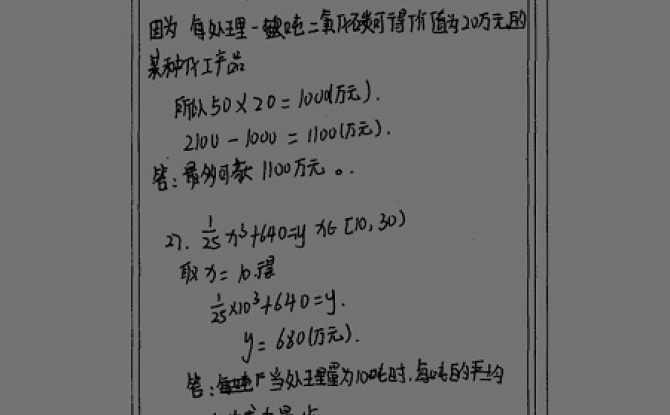 因为 每处理一吨二氧化碳可得价值为20万元的
某种化工产品
所以 50×20=1000(万元).
2100-1000=1100(万元).
答:最多可获 1100万元。
2). 1/25 x³+640=y x∈[10,30)
取x=10.得
1/25×10³+640=y.
y=680(万元).
答: 当处理量为100吨时,每吨的平均